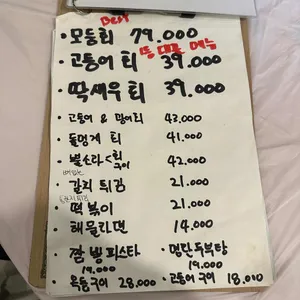 Best
· 모둠회 79.000
· 고등어 회 39.000
· 딱새우 회 39.000
· 고등어 & 딱새회 43.000
· 돌멍게 회 41.000
· 뿔소라 < 회 구이 42.000
· 갈치 튀김 21.000
· 떡볶이 21.000
· 해물라면 14.000
· 짬뽕파스타 19.000
· 명란두부탕 19.000
· 옥돔구이 28.000
· 고등어구이 18.000